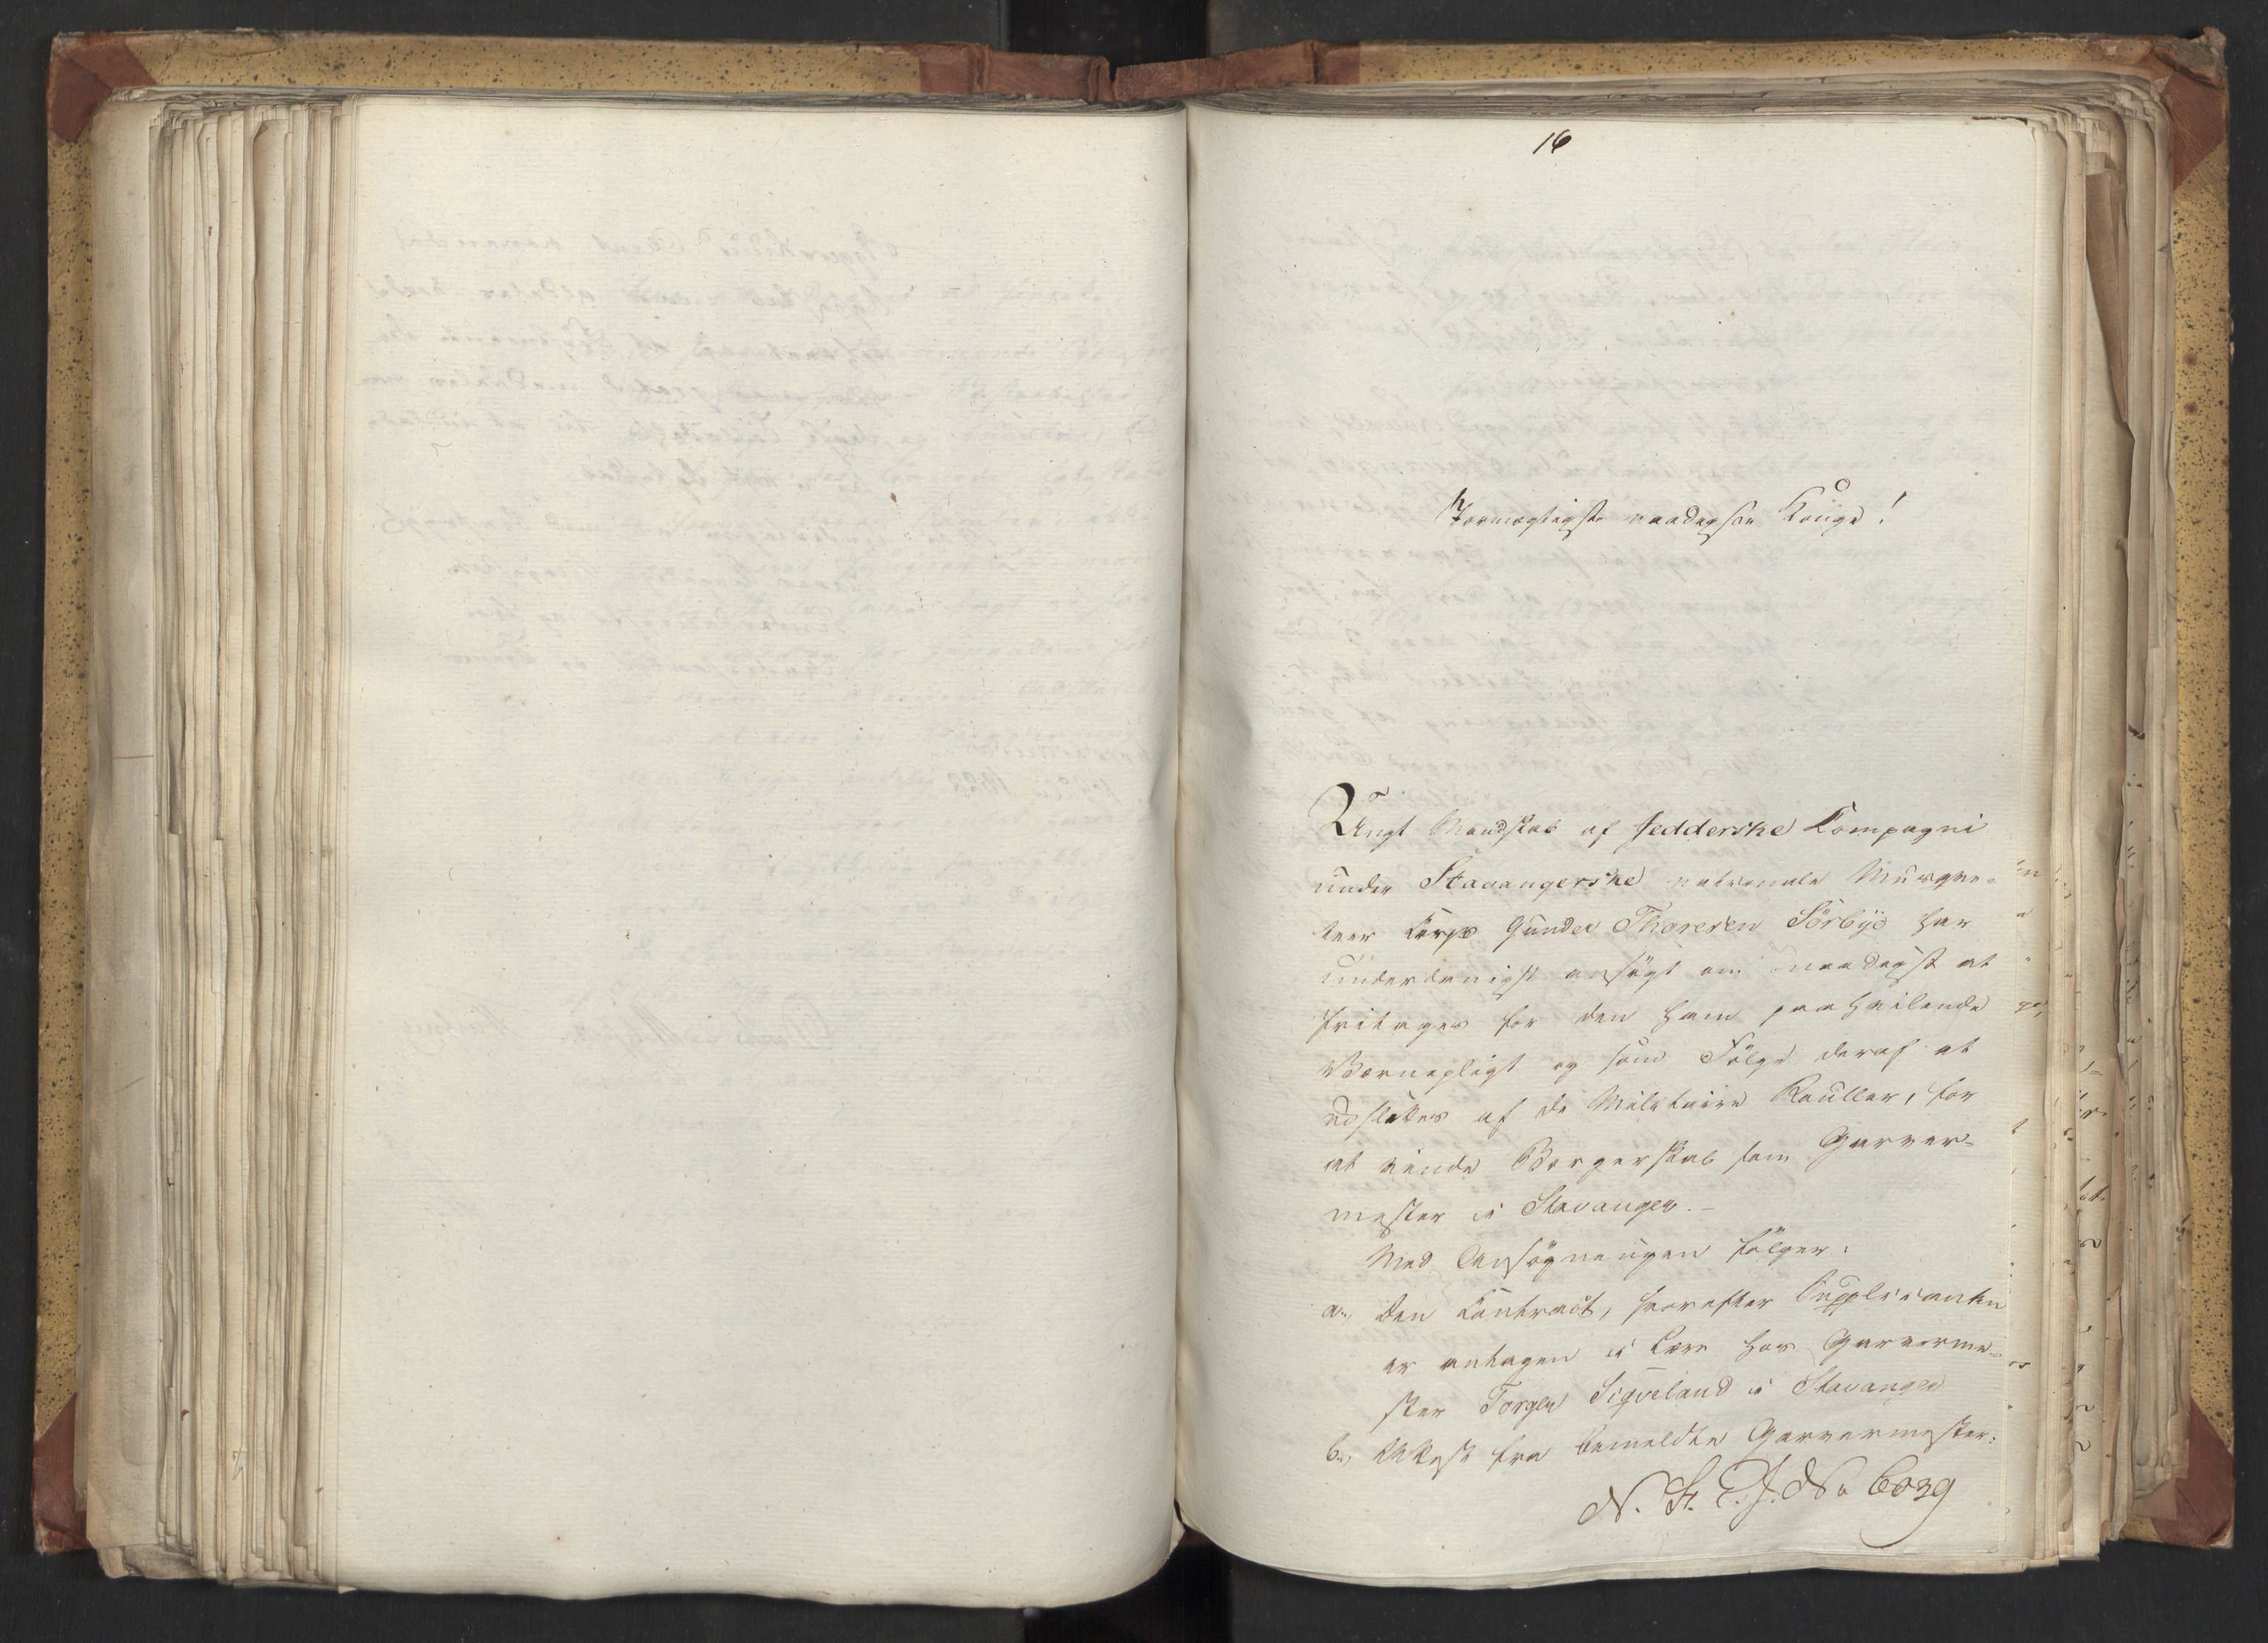 16
Stormægtigste naadigste Konge!
Ungt Mandskab af Jedderske Compagni
under Stavangerske nationale Musque-
teer Corps Gunder Thoresen Sörbÿe har
underdanigst ansögt om naadigst at
fritages for den ham paahvilende
Værnepligt og som Fölge deraf at
udslettes af de Militaire Rouller, for
at vinde Borgerskab som Garver-
mester i Stavanger.-
Med Ansögningen fölger:
a., den Contract, hvorefter Supplicanten
er antagen i Lære hos Garverme-
ster Torger Sigveland i Stavanger
b., Attest fra bemeldte Garvermester:
N. St. C. J. No 6039